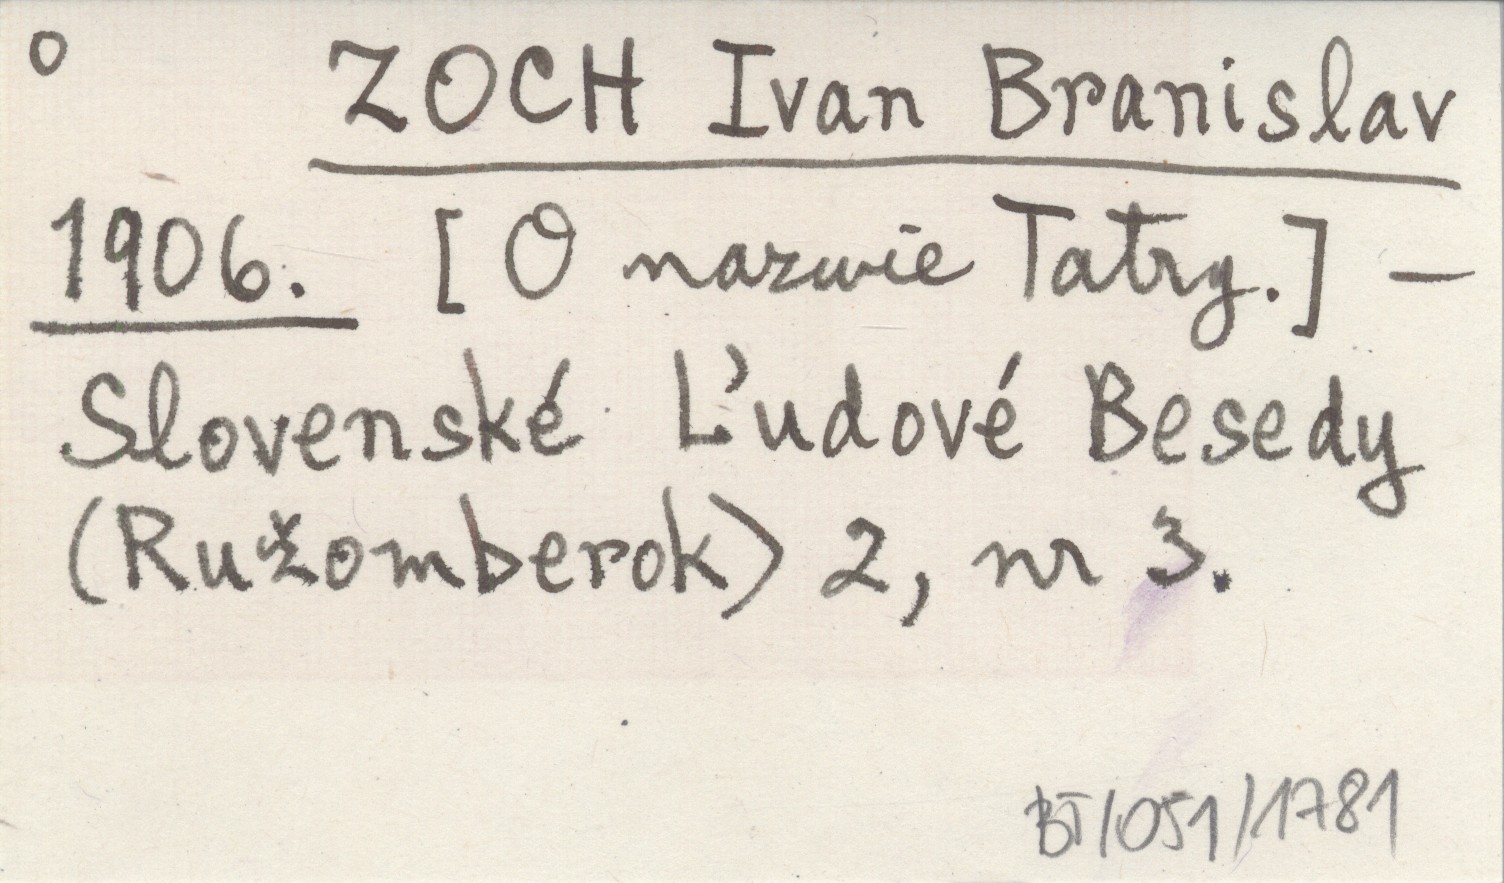 o ZOCH Ivan Branislav
1906. [O nazwie Tatry.] —
Slovenské Ľudové Besedy
(Ružomberok) 2, nr 3.
BT/051/1781